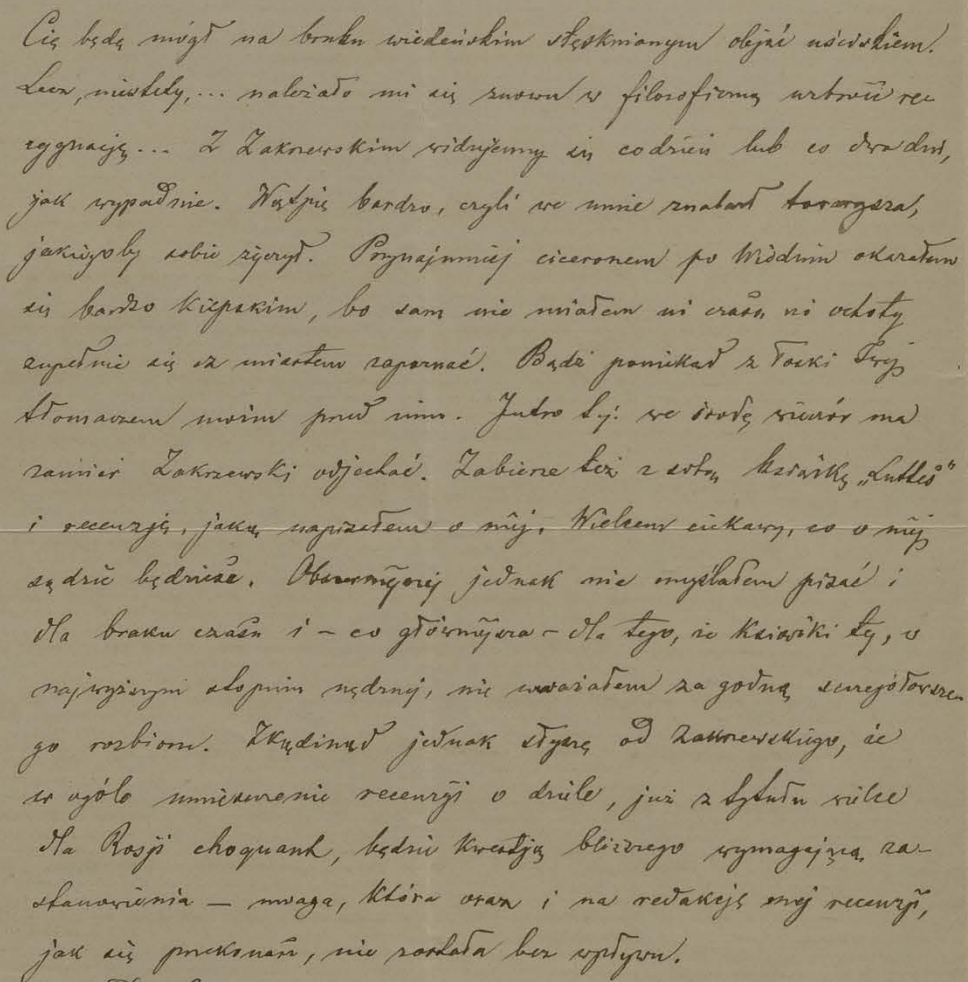 Cię będę mógł na bruku wiedeńskim stęsknionym objąć uściskiem.
Lecz, niestety,... należało mi się znowu w filozoficzną uzbroić re-
zygnację... Z Zakrzewskim widujemy się codzień lub co dwa dni,
jak wypadnie. Wątpię bardzo, czyli we mnie znalazł towarzysza,
jakiegoby sobie życzył. Przynajmniej ciceronem po Widniu okazałem
się bardzo kiepskim, bo sam nie miałem ni czasu ni ochoty
zupełnie się z miastem zapoznać. Bądź poniekąd z łaski Twej
tłomaczem moim przed nim. Jutro t.j. we środę wieczór ma
zamiar Zakrzewski odjechać. Zabierze też z sobą książkę „
i recenzję, jaką napisałem o niej. Wielcem ciekawy, co o niej
sądzić będziesz. Obszerniejszej jednak nie myślałem pisać i
dla braku czasu i – co główniejsza – dla tego, że książki tej, w
najwyższym stopniu nędznej, nie uważałem za godną szczegółowsze-
go rozbioru. Zkądinąd jednak słyszę od Zakrzewskiego, że
w ogóle umieszczenie recenzji o dziele, już z tytułu wielce
dla Rosji choquant, będzie kwestją bliższego wymagającą za-
stanowienia – uwaga, która oraz i na redakcję mej recenzji,
jak się przekonasz, nie została bez wpływu.